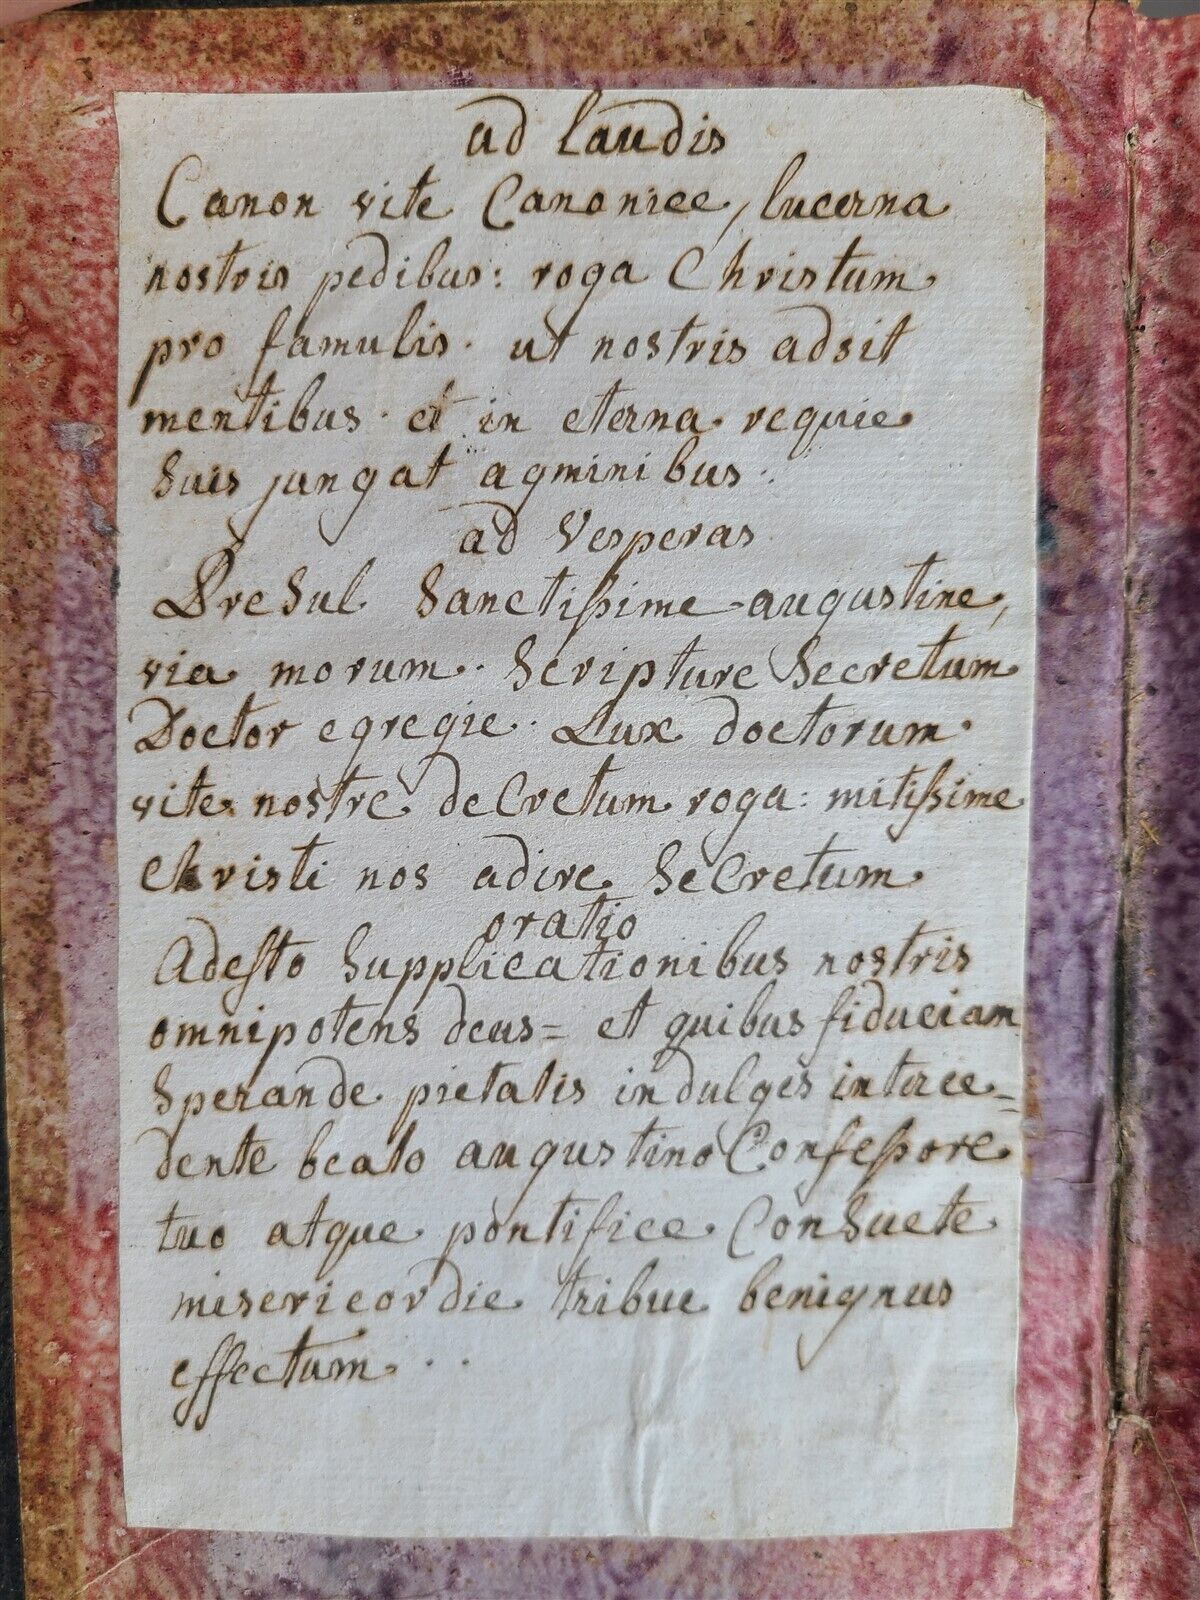 ad laudis
Canon vite Canonice, lucerna
nostris pedibus: roga Christum
pro famulis. ut nostris adsit
mentibus. et in eterna requie
Suis jungat agminibus.
ad Vesperas
PreSul Sanctißime augustine,
via morum. Scripture Secretum
Doctor egregie. Lux doctorum.
vite nostre deCretum roga: mitißime
Christi nos adire SeCretum
oratio
Adeſto Supplicationibus nostris
omnipotens deus= et quibus fiduciam
Sperande pietatis indulges interce=
dente beato augustino Confeßore
tuo atque pontifice ConSuete
misericordie tribue benignus
effectum..